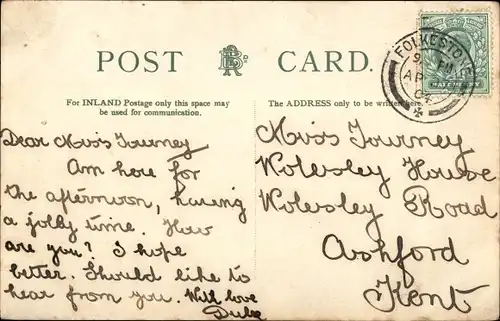 POST CARD.
For INLAND Postage only this space may
be used for communication.
The ADDRESS only to be written here.
FOLKESTONE
Dear Miss Tourney
Am here for
the afternoon, having
a jolly time. How
are you? I hope
better. Should like to
hear from you. With love
Duke
Miss Tourney
Wolesley House
Wolesley Road
Ashford
Kent